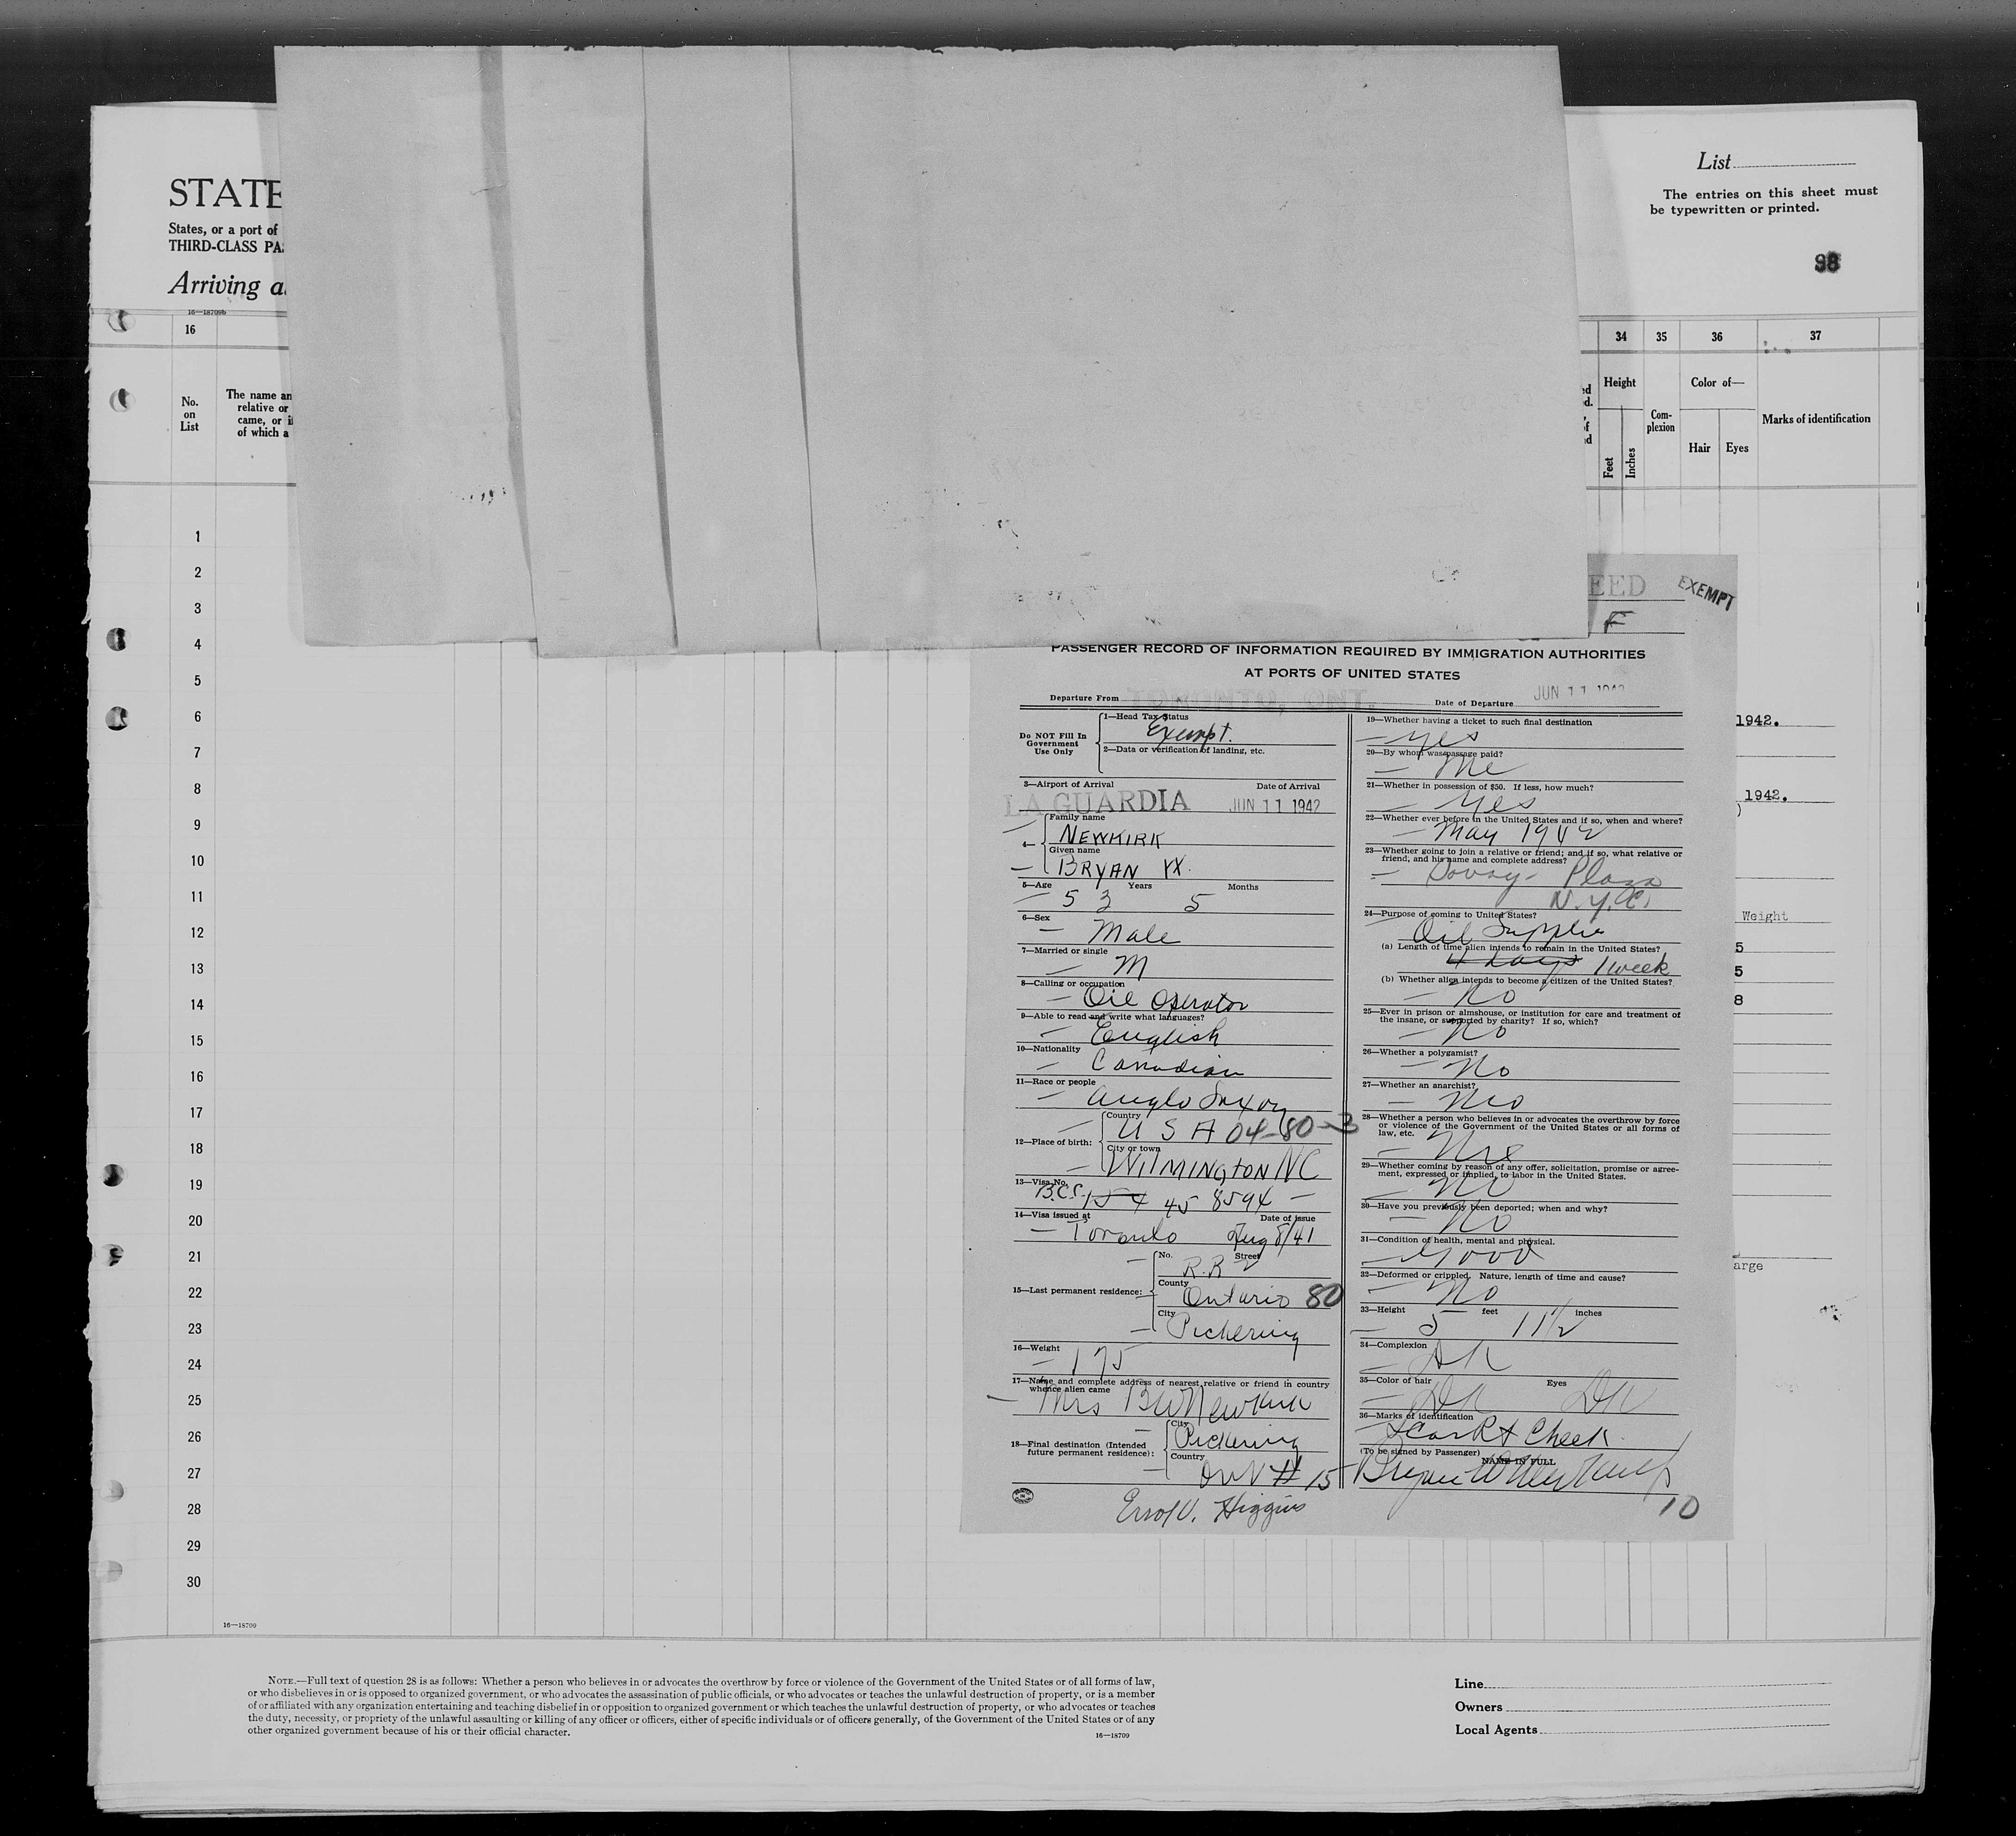 STATE
States, or a port of
THIRD-CLASS PA
Arriving a
List
The entries on this sheet must
be typewritten or printed.
98
16—18709b
16
34
35
36
37
No.
on
List
The name an
relative or
came, or i
of which a
Height
Feet
Inches
Com-
plexion
Color of—
Hair
Eyes
Marks of identification
1
2
3
4
5
6
7
8
9
10
11
12
13
14
15
16
17
18
19
20
21
22
23
24
25
26
27
28
29
30
16—18709
EED EXEMPT
F
PASSENGER RECORD OF INFORMATION REQUIRED BY IMMIGRATION AUTHORITIES
AT PORTS OF UNITED STATES
Departure From TORONTO, ONT. Date of Departure JUN 11 1942
Do NOT Fill In
Government
Use Only
1—Head Tax Status
Exempt.
2—Data or verification of landing, etc.
3—Airport of Arrival Date of Arrival
LA GUARDIA JUN 11 1942
4—
Family name
NEWKIRK
Given name
BRYAN W.
5—Age Years Months
53 5
6—Sex
Male
7—Married or single
M
8—Calling or occupation
Oil Operator
9—Able to read and write what languages?
English
10—Nationality
Canadian
11—Race or people
Anglo Saxon
12—Place of birth:
Country
U S A 04-80-3
City or town
WILMINGTON NC
13—Visa No.
B.C.C. 154 45 8594
14—Visa issued at Date of issue
Toronto Aug 8/41
15—Last permanent residence:
No. Street
R.R 2
County
Ontario 80
City
Pickering
16—Weight
175
17—Name and complete address of nearest relative or friend in country
whence alien came
Mrs B W Newkirk
18—Final destination (Intended
future permanent residence):
City
Pickering
Country
Ont # 15
Errol V. Higgins
19—Whether having a ticket to such final destination
Yes
20—By whom was passage paid?
Me
21—Whether in possession of $50. If less, how much?
Yes
22—Whether ever before in the United States and if so, when and where?
May 1942
23—Whether going to join a relative or friend; and if so, what relative or
friend, and his name and complete address?
Savoy-Plaza
N.Y.C.
24—Purpose of coming to United States?
Oil Supplies
(a) Length of time alien intends to remain in the United States?
4 Days 1 week
(b) Whether alien intends to become a citizen of the United States?
No
25—Ever in prison or almshouse, or institution for care and treatment of
the insane, or supported by charity? If so, which?
No
26—Whether a polygamist?
No
27—Whether an anarchist?
No
28—Whether a person who believes in or advocates the overthrow by force
or violence of the Government of the United States or all forms of
law, etc.
No
29—Whether coming by reason of any offer, solicitation, promise or agree-
ment, expressed or implied, to labor in the United States.
No
30—Have you previously been deported; when and why?
No
31—Condition of health, mental and physical.
Good
32—Deformed or crippled. Nature, length of time and cause?
No
33—Height feet inches
5 11 1/2
34—Complexion
DK
35—Color of hair Eyes
DK DK
36—Marks of identification
Scar Rt Cheek
(To be signed by Passenger) NAME IN FULL
Bryan W Newkirk
10
1942.
1942.
Weight
5
5
8
arge
NOTE.—Full text of question 28 is as follows: Whether a person who believes in or advocates the overthrow by force or violence of the Government of the United States or of all forms of law,
or who disbelieves in or is opposed to organized government, or who advocates the assassination of public officials, or who advocates or teaches the unlawful destruction of property, or is a member
of or affiliated with any organization entertaining and teaching disbelief in or opposition to organized government or which teaches the unlawful destruction of property, or who advocates or teaches
the duty, necessity, or propriety of the unlawful assaulting or killing of any officer or officers, either of specific individuals or of officers generally, of the Government of the United States or of any
other organized government because of his or their official character.
16—18709
Line
Owners
Local Agents